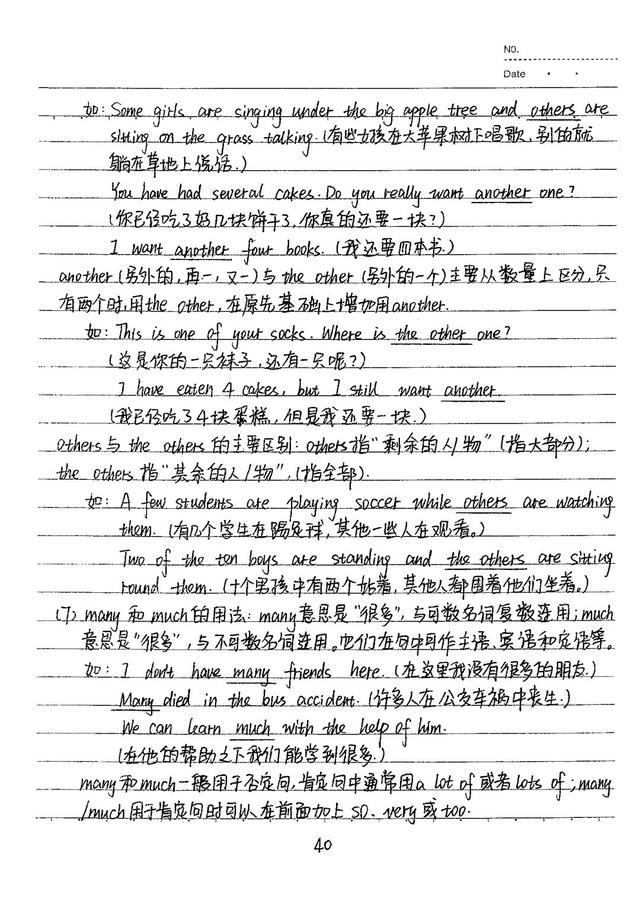 NO.
Date
如: Some girls are singing under the big apple tree and others are
sitting on the grass talking. (有些女孩在大苹果树下唱歌，别的就
躺在草地上说话.)
You have had several cakes. Do you really want another one?
(你已经吃了好几块饼干了，你真的还要一块?)
I want another four books. (我还要四本书.)
another (另外的，再一，又一) 与 the other (另外的一个) 主要从数量上区分，只
有两个时，用the other, 在原先基础上增加用another.
如: This is one of your socks. Where is the other one?
(这是你的一只袜子，还有一只呢?)
I have eaten 4 cakes, but I still want another.
(我已经吃了4块蛋糕，但是我还要一块.)
others 与 the others 的主要区别: others指“剩余的人/物” (指大部分);
the others 指“其余的人/物”, (指全部).
如: A few students are playing soccer while others are watching
them. (有几个学生在踢足球，其他一些人在观看。)
Two of the ten boys are standing and the others are sitting
round them. (十个男孩中有两个站着，其他人都围着他们坐着。)
(7) many 和 much的用法: many意思是“很多”, 与可数名词复数连用; much
意思是“很多”, 与不可数名词连用。它们在句中可作主语、宾语和定语等。
如: I don't have many friends here. (在这里我没有很多的朋友.)
Many died in the bus accident. (许多人在公交车祸中丧生.)
We can learn much with the help of him.
(在他的帮助之下我们能学到很多.)
many和much一般用于否定句，肯定句中通常用a lot of 或者 lots of; many
/much 用于肯定句时可以在前面加上 so、very 或 too.
40